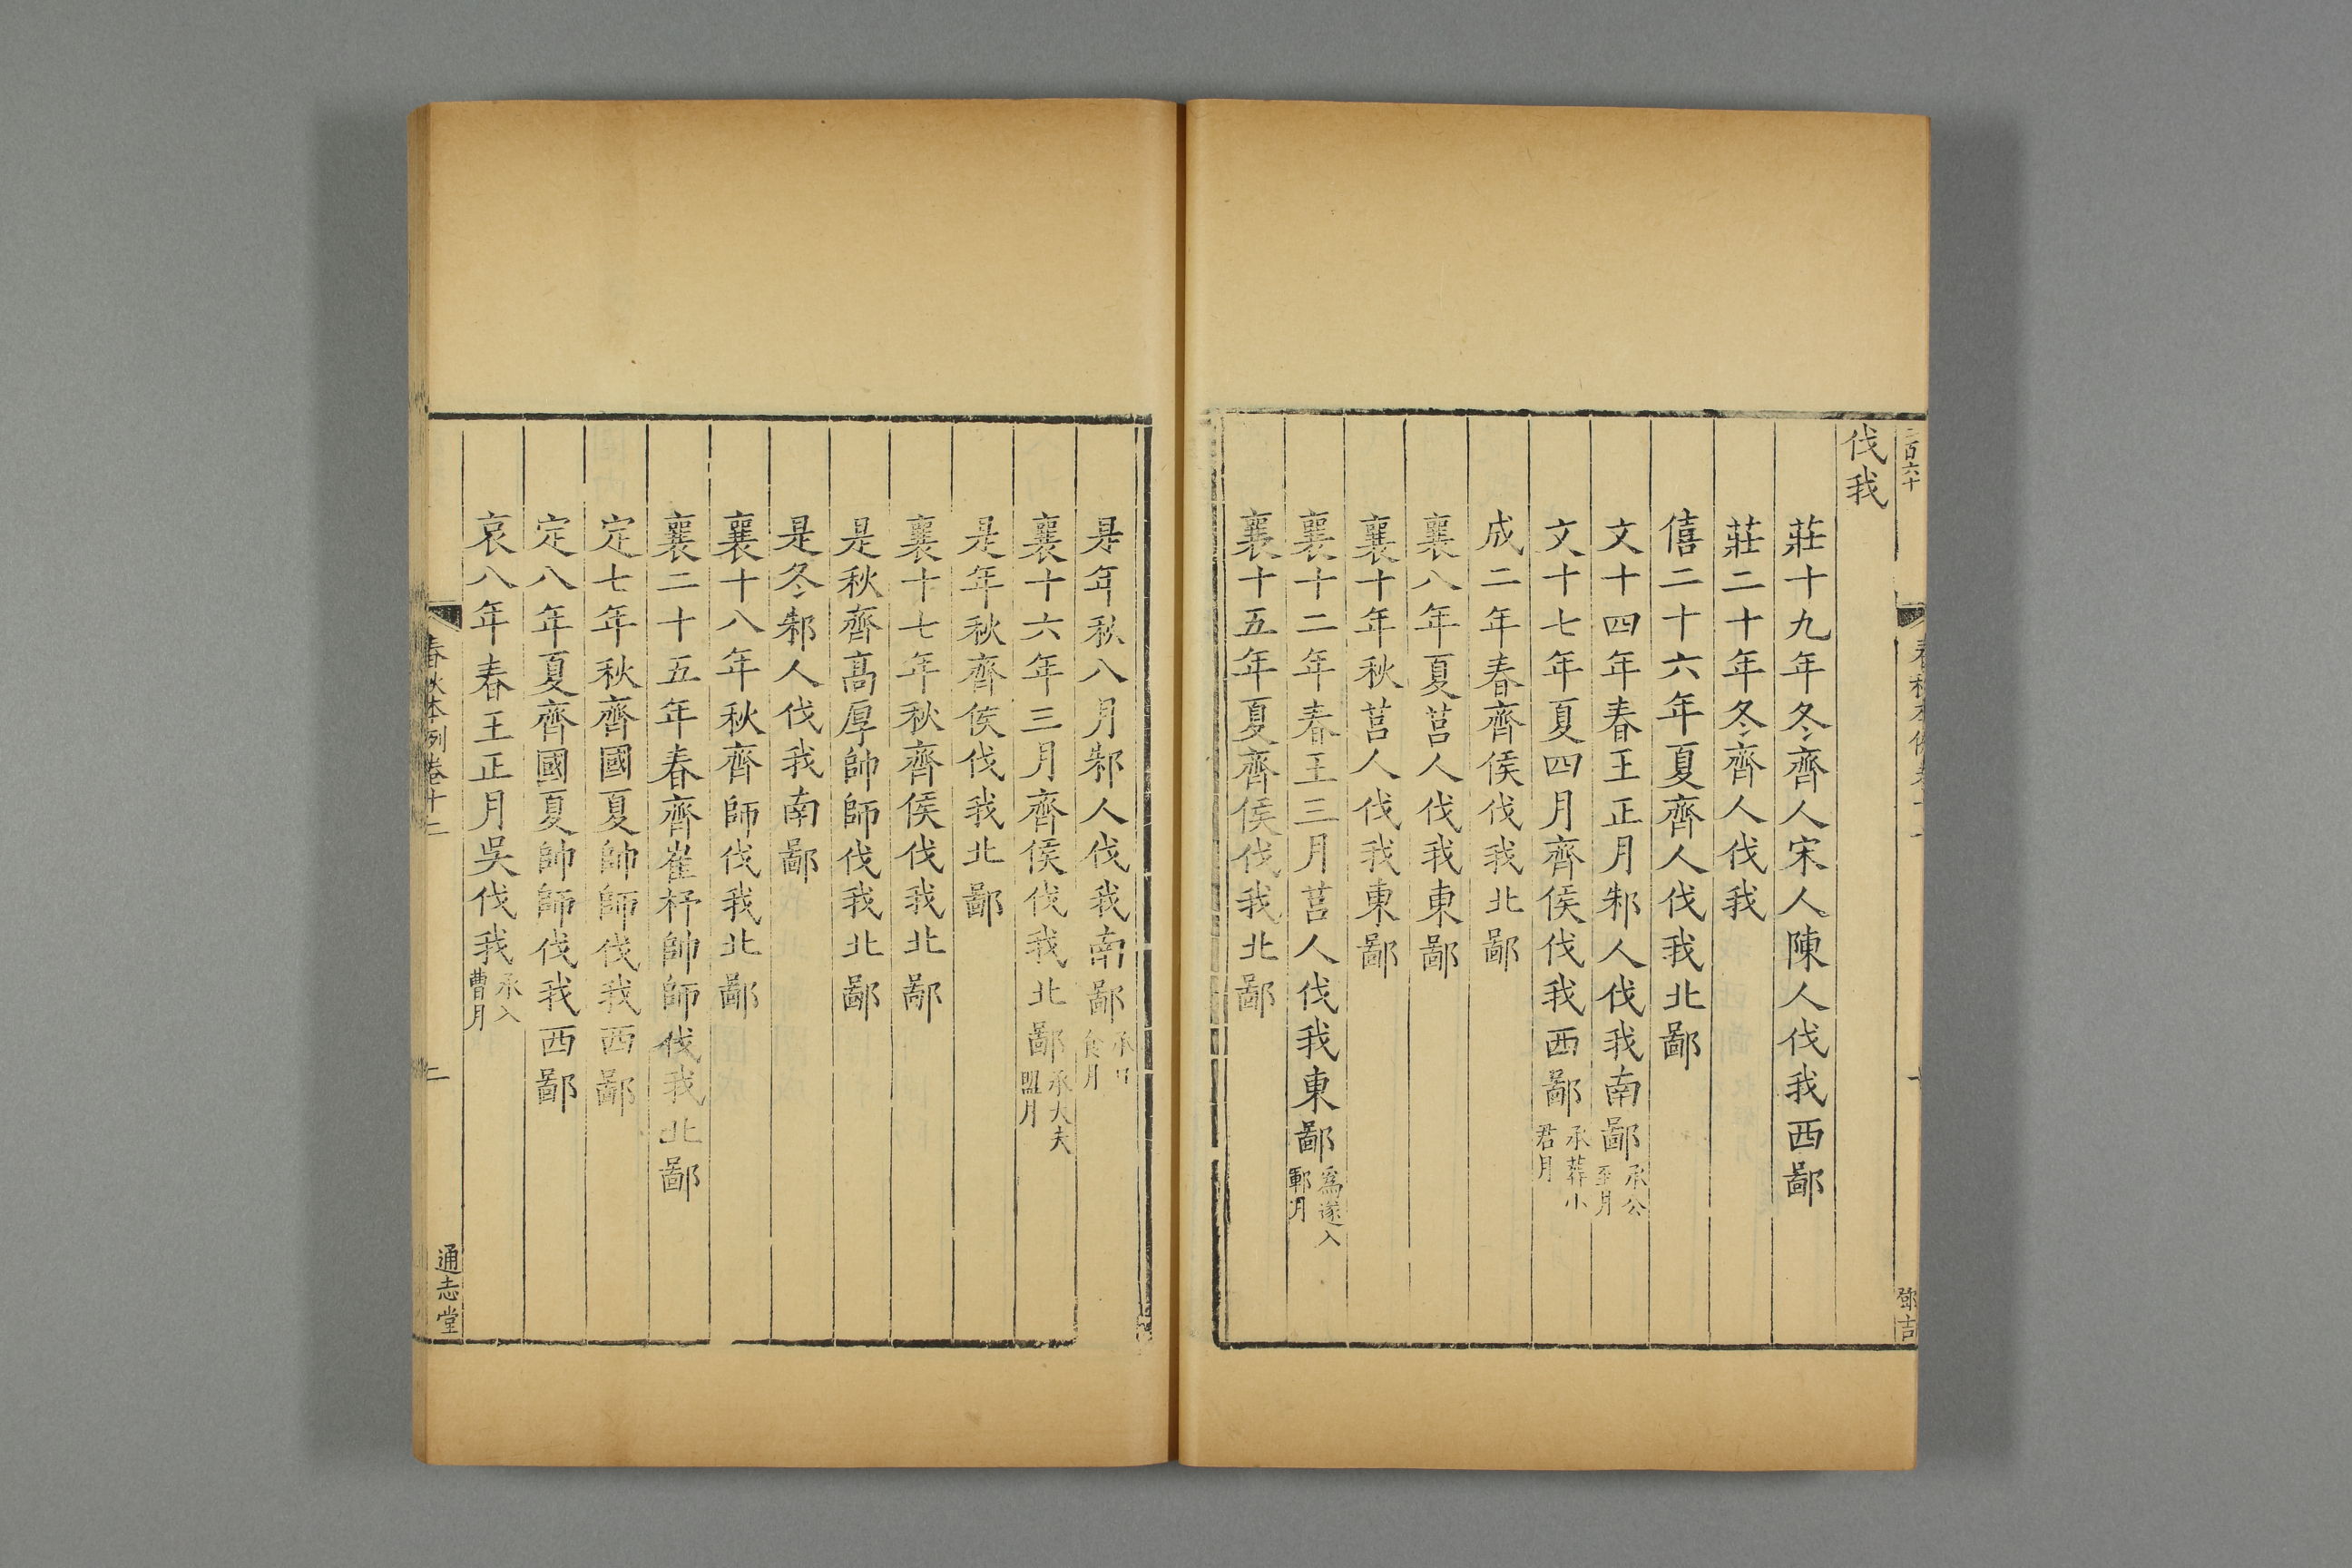 二百六十
鄧吉
伐我
莊十九年冬齊人宋人陳人伐我西鄙
莊二十年冬齊人伐我
僖二十六年夏齊人伐我北鄙
文十四年春王正月邾人伐我南鄙承公至月
文十七年夏四月齊侯伐我西鄙承葬小君月
成二年春齊侯伐我北鄙
襄八年夏莒人伐我東鄙
襄十年秋莒人伐我東鄙
襄十二年春王三月莒人伐我東鄙為遂入鄆月
襄十五年夏齊侯伐我北鄙
是年秋八月邾人伐我南鄙承日食月
襄十六年三月齊侯伐我北鄙承大夫盟月
是年秋齊侯伐我北鄙
襄十七年秋齊侯伐我北鄙
是秋齊高厚帥師伐我北鄙
是冬邾人伐我南鄙
襄十八年秋齊師伐我北鄙
襄二十五年春齊崔杼帥師伐我北鄙
定七年秋齊國夏帥師伐我西鄙
定八年夏齊國夏帥師伐我西鄙
哀八年春王正月吳伐我承入曹月
春秋本例卷十二
二
通志堂